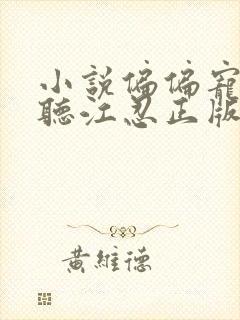 小說偏偏寵
聽江忍正版
黃維德